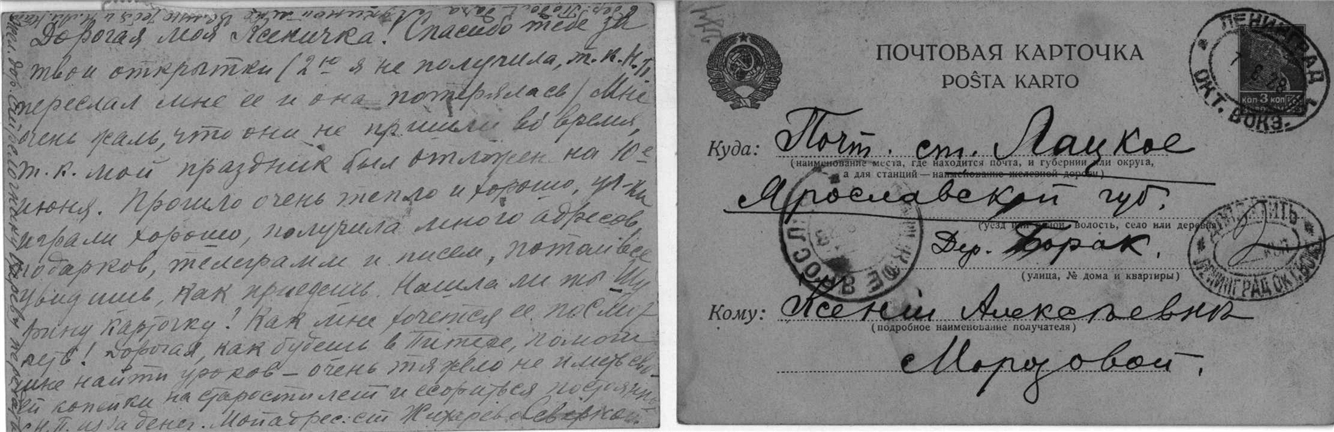 Дорогая моя Ксеничка! Спасибо тебе за
твои открытки (2ую я не получила, т.к. Н.П.
переслал мне ее и она потерялась) Мне
очень жаль, что они не пришли во время,
т.к. мой праздник был отложен на 10е
июня. Прошло очень тепло и хорошо, уч-ки
играли хорошо, получила много адресов,
подарков, телеграмм и писем, потом все
увидишь, как приедешь. Нашла ли ты Шу
рину карточку? Как мне хочется ее посмот
реть! Дорогая, как будешь в Питере, помоги
мне найти уроков — очень тяжело не иметь сво
ей копейки на старости лет и ссориться постоянно
с Н.П. из за денег. Мой адрес: ст.
ПОЧТОВАЯ КАРТОЧКА
POŜTA KARTO
ЛЕНИНГРАД
ОКТ. ВОКЗ.
КОП 3 КОП
Куда: Почт. ст. Лацкое
(наименование места, где находится почта, и губернии или округа,
а для станций — наименование железной дороги)
Ярославской губ.
(уезд или район, волость, село или деревня)
Дер. Борак.
(улица, № дома и квартиры)
Кому: Ксении Алексеевне
(подробное наименование получателя)
Мордовой.
ДОПЛАТИТЬ
ЛЕНИНГРАД ОКТ. ВОКЗ.